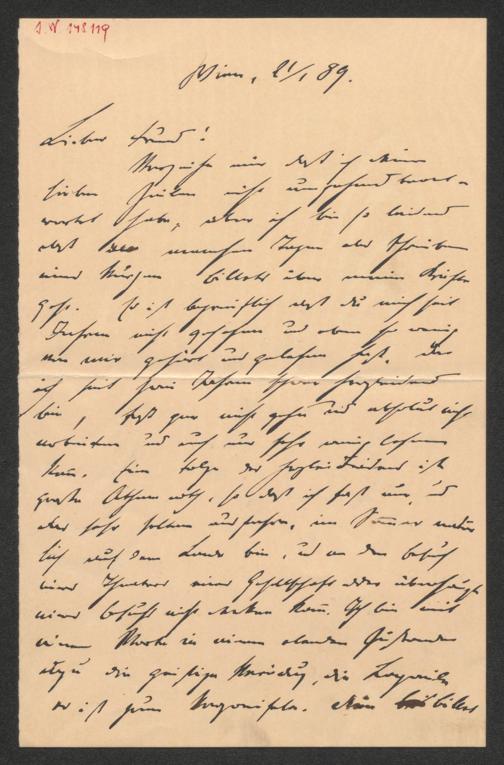 I.N. 148119
Wien, 21/1 89.
Lieber Freund!
Verzeihe mir daß ich Deine
lieben Zeilen nicht umgehend beant-
wortet habe, aber ich bin so leidend
daß an manchen Tagen das Schreiben
eines kurzen Billets über meine Kräfte
geht. Es ist begreiflich daß Du mich seit
Jahren nicht gesehen und eben so wenig
von mir gehört und gelesen hast, da
ich seit zwei Jahren schwer herzleidend
bin, fast gar nicht gehen und absolut nicht
arbeiten und auch nur sehr wenig lesen
kann. Eine Folge des Herzleidens ist
große Athemnoth, so daß ich fast nie, und
aber sehr selten ausfahre, im Sommer natür
lich auf dem Lande bin, und an den Besuch
eines Theaters einer Gesellschaft oder überhaupt
eines Besuchs nicht denken kann. Ich bin mit
einem Worte in einem elenden Zustande
dazu die geistige Verödung, die Langeweile
es ist zum Verzweifeln. Dein Billet